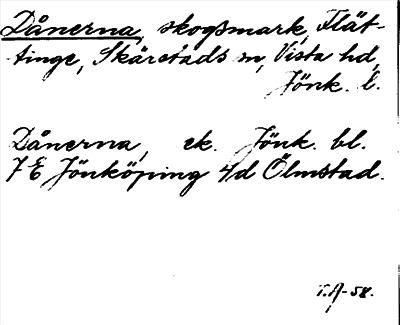 Dånerna, skogsmark, Flät-
tinge, Skärstads sn, Vista hd,
Jönk. l.
Dånerna, ek. Jönk. bl.
7 E Jönköping 4d Ölmstad.
T.A-58.